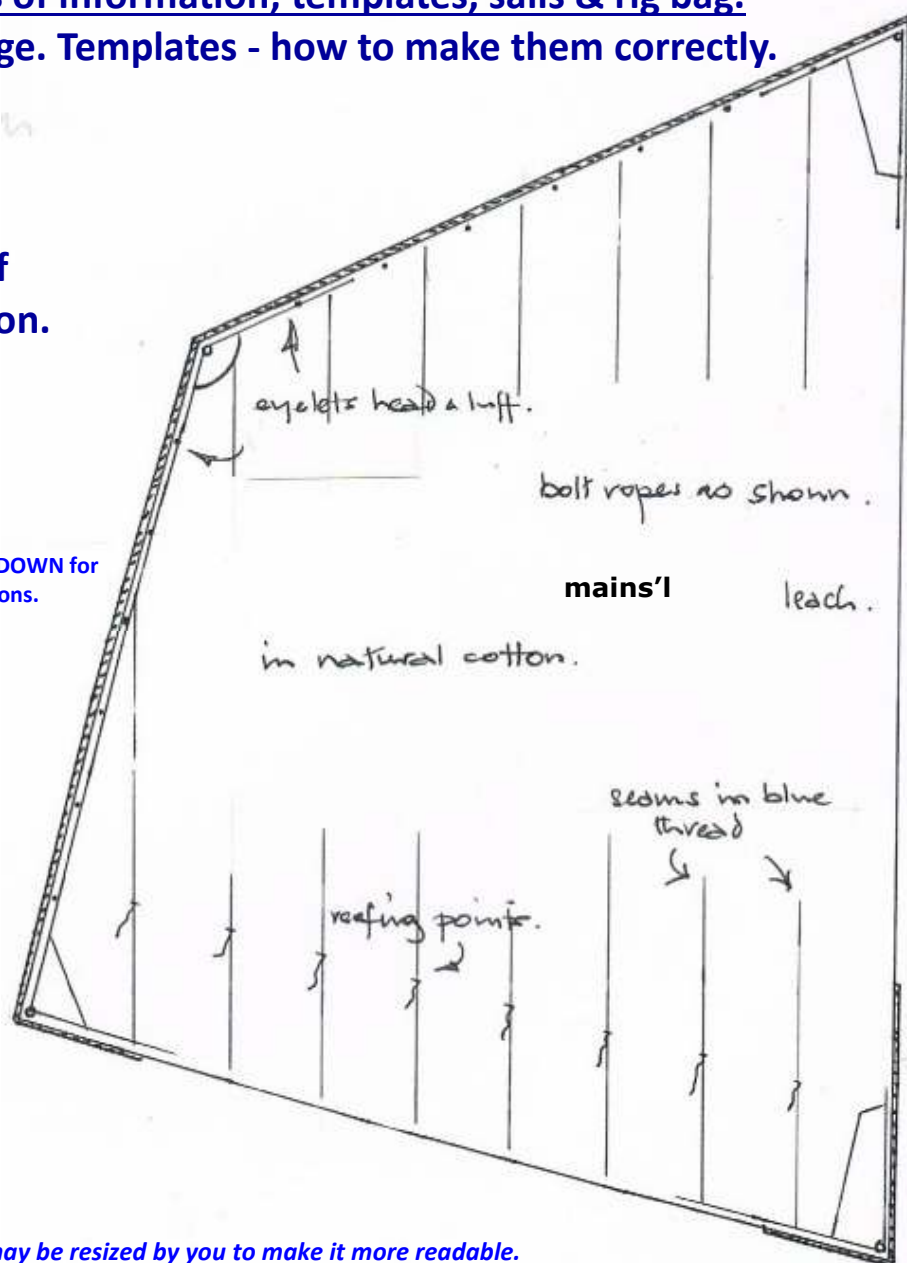 of information, templates, sails & rig bag.
ge. Templates - how to make them correctly.
f
on.
eyelets head & luff.
bolt ropes as shown.
DOWN for
ons.
mains'l
leach.
in natural cotton.
seams in blue
thread
reefing points.
may be resized by you to make it more readable.